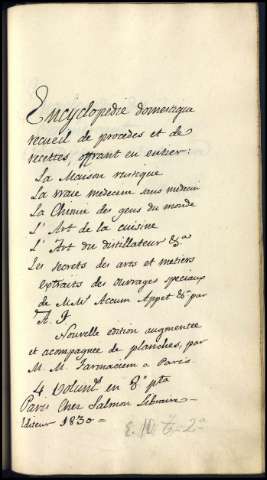 Encyclopedie domestique
recueil de procedes et de
recettes, offrant en entier:
La Maison rustique
La vraie medecine sans medecin
La Chimie des gens du monde
L'Art de la cuisine
L'Art du distillateur &a
Les secrets des arts et metiers
extraits des ouvrages speciaux
de MM. Accum Appet &a par
A. F
Nouvelle edition augmentée
et acompagnée de planches, par
M. M. Farmacien a Paris
4 Volum. en 8º pta
Paris Chez Salmon Libraire-
Editeur 1830=